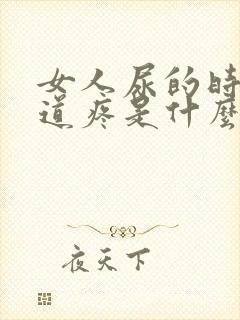 女人尿的時
道疼是什麼
夜天下